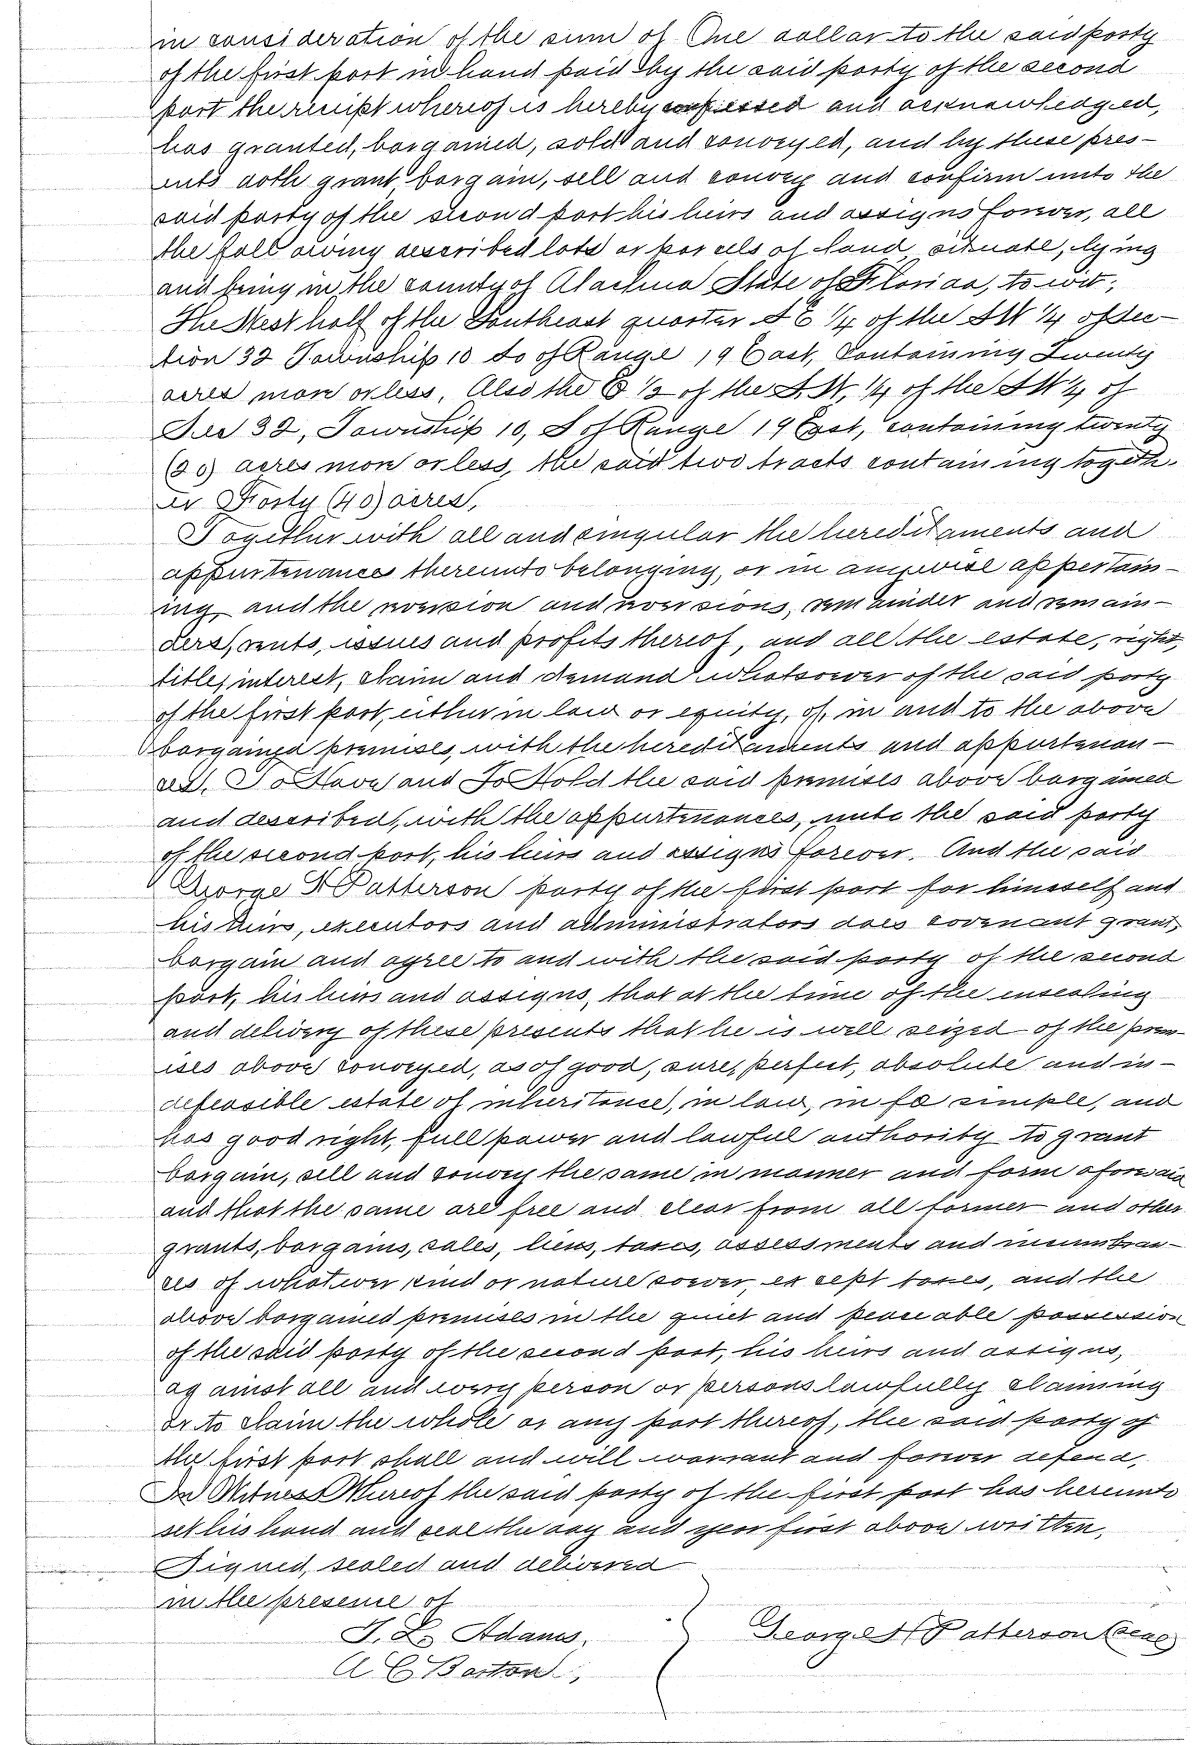 in consideration of the sum of One dollar to the said party
of the first part in hand paid by the said party of the second
part the receipt whereof is hereby confessed and acknowledged,
has granted, bargained, sold and conveyed, and by these pres-
ents doth grant, bargain, sell and convey and confirm unto the
said party of the second part his heirs and assigns forever, all
the following described lots or parcels of land, situate, lying
and being in the county of Alachua State of Florida, to wit;
The West half of the Southeast quarter S E ¼ of the S W ¼ of Sec-
tion 32 Township 10 So of Range 19 East, Containing Twenty
acres more or less, Also the E ½ of the S. W. ¼ of the S W ¼ of
Sec 32, Township 10, S of Range 19 East, containing twenty
(20) acres more or less, the said two tracts containing togeth-
er Forty (40) acres,
Together with all and singular the hereditaments and
appurtenances thereunto belonging, or in anywise appertain-
ing, and the reversion and reversions, remainder and remain-
ders, rents, issues and profits thereof, and all the estate, right,
title, interest, claim and demand whatsoever of the said party
of the first part, either in law or equity, of, in and to the above
bargained premises, with the hereditaments and appurtenan-
ces. To Have and To Hold the said premises above bargained
and described, with the appurtenances, unto the said party
of the second part, his heirs and assigns forever. And the said
George H Patterson party of the first part for himself and
his heirs, executors and administrators does covenant grant,
bargain and agree to and with the said party of the second
part, his heirs and assigns, that at the time of the ensealing
and delivery of these presents that he is well seized of the prem-
ises above conveyed, as of good, sure, perfect, absolute and in-
defeasible estate of inheritance, in law, in fee simple, and
has good right, full power and lawful authority to grant
bargain, sell and convey the same in manner and form aforesaid
and that the same are free and clear from all former and other
grants, bargains, sales, liens, taxes, assessments and incumbran-
ces of whatever kind or nature soever, except taxes, and the
above bargained premises in the quiet and peaceable possession
of the said party of the second part, his heirs and assigns,
against all and every person or persons lawfully claiming
or to claim the whole or any part thereof, the said party of
the first part shall and will warrant and forever defend,
In Witness Whereof the said party of the first part has hereunto
set his hand and seal the day and year first above written,
Signed, sealed and delivered
in the presence of
J. L. Adams.
George H Patterson (Seal)
A C Barton,